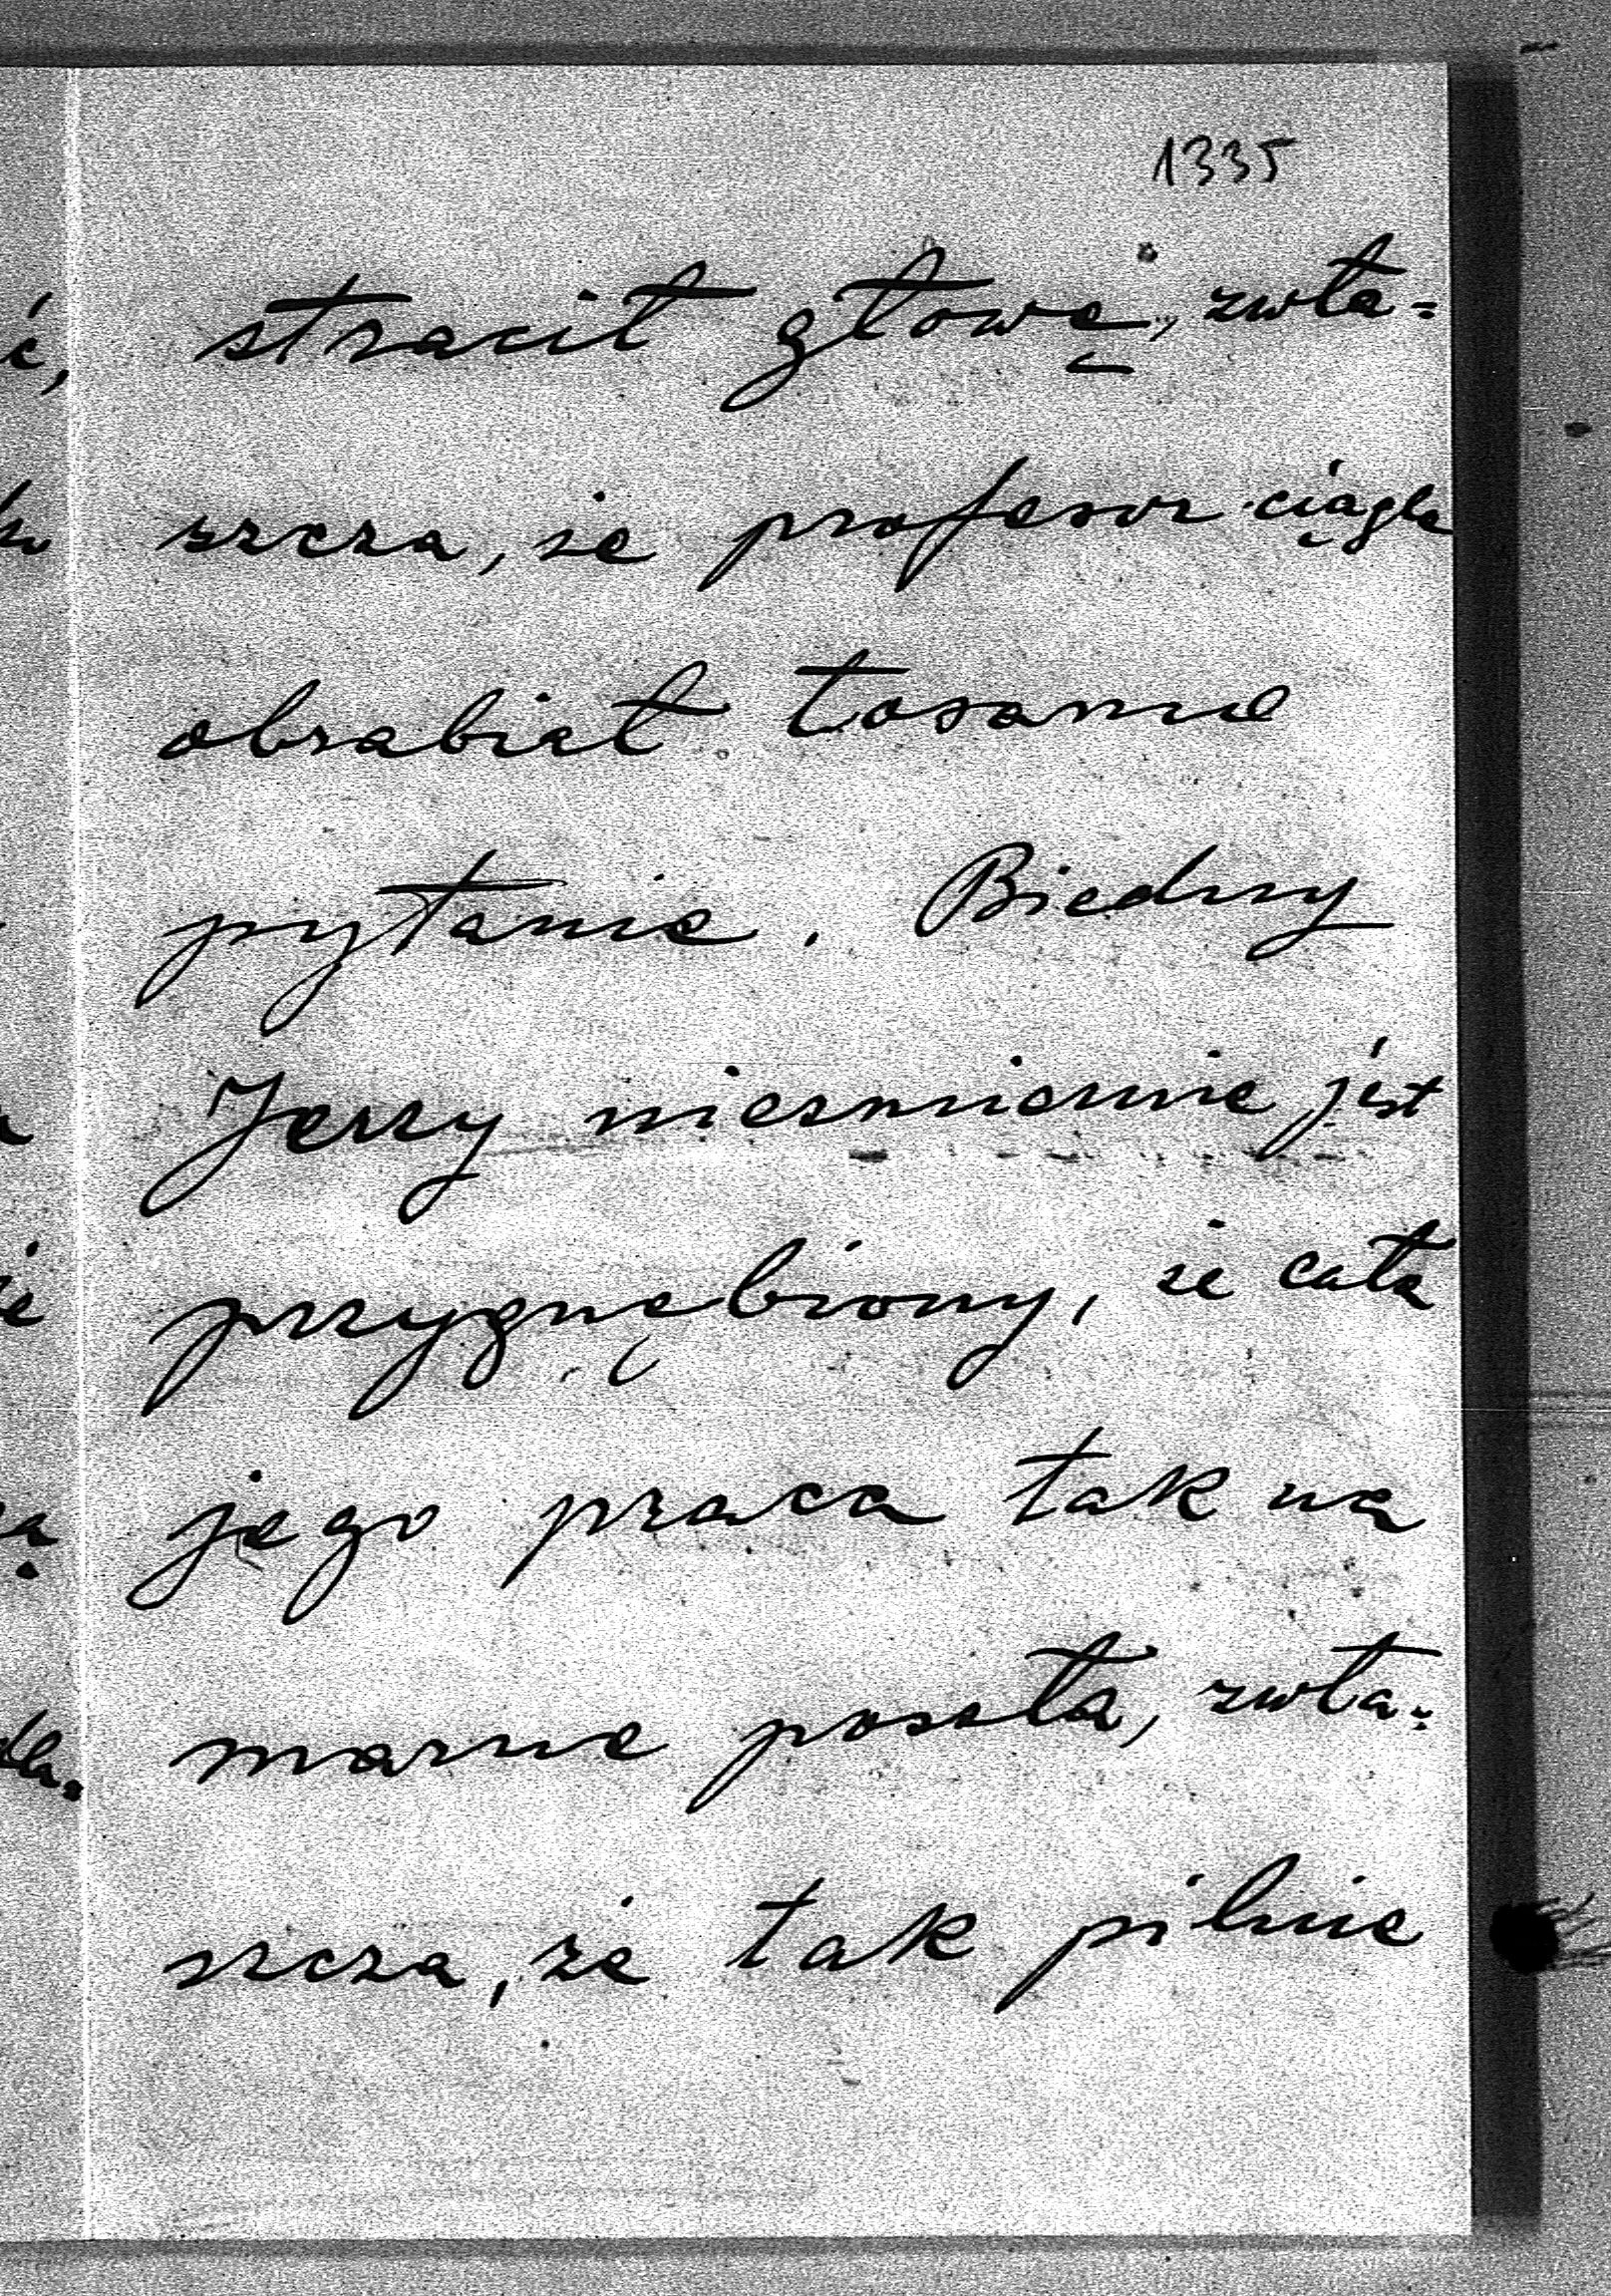 1335
stracił głowę, zwła-
szcza, że profesor ciągle
obrabiał tosamo
pytanie. Biedny
Jerzy niezmiernie jest
przygnębiony, że cała
jego praca tak na
marne poszła, zwła-
szcza, że tak pilnie